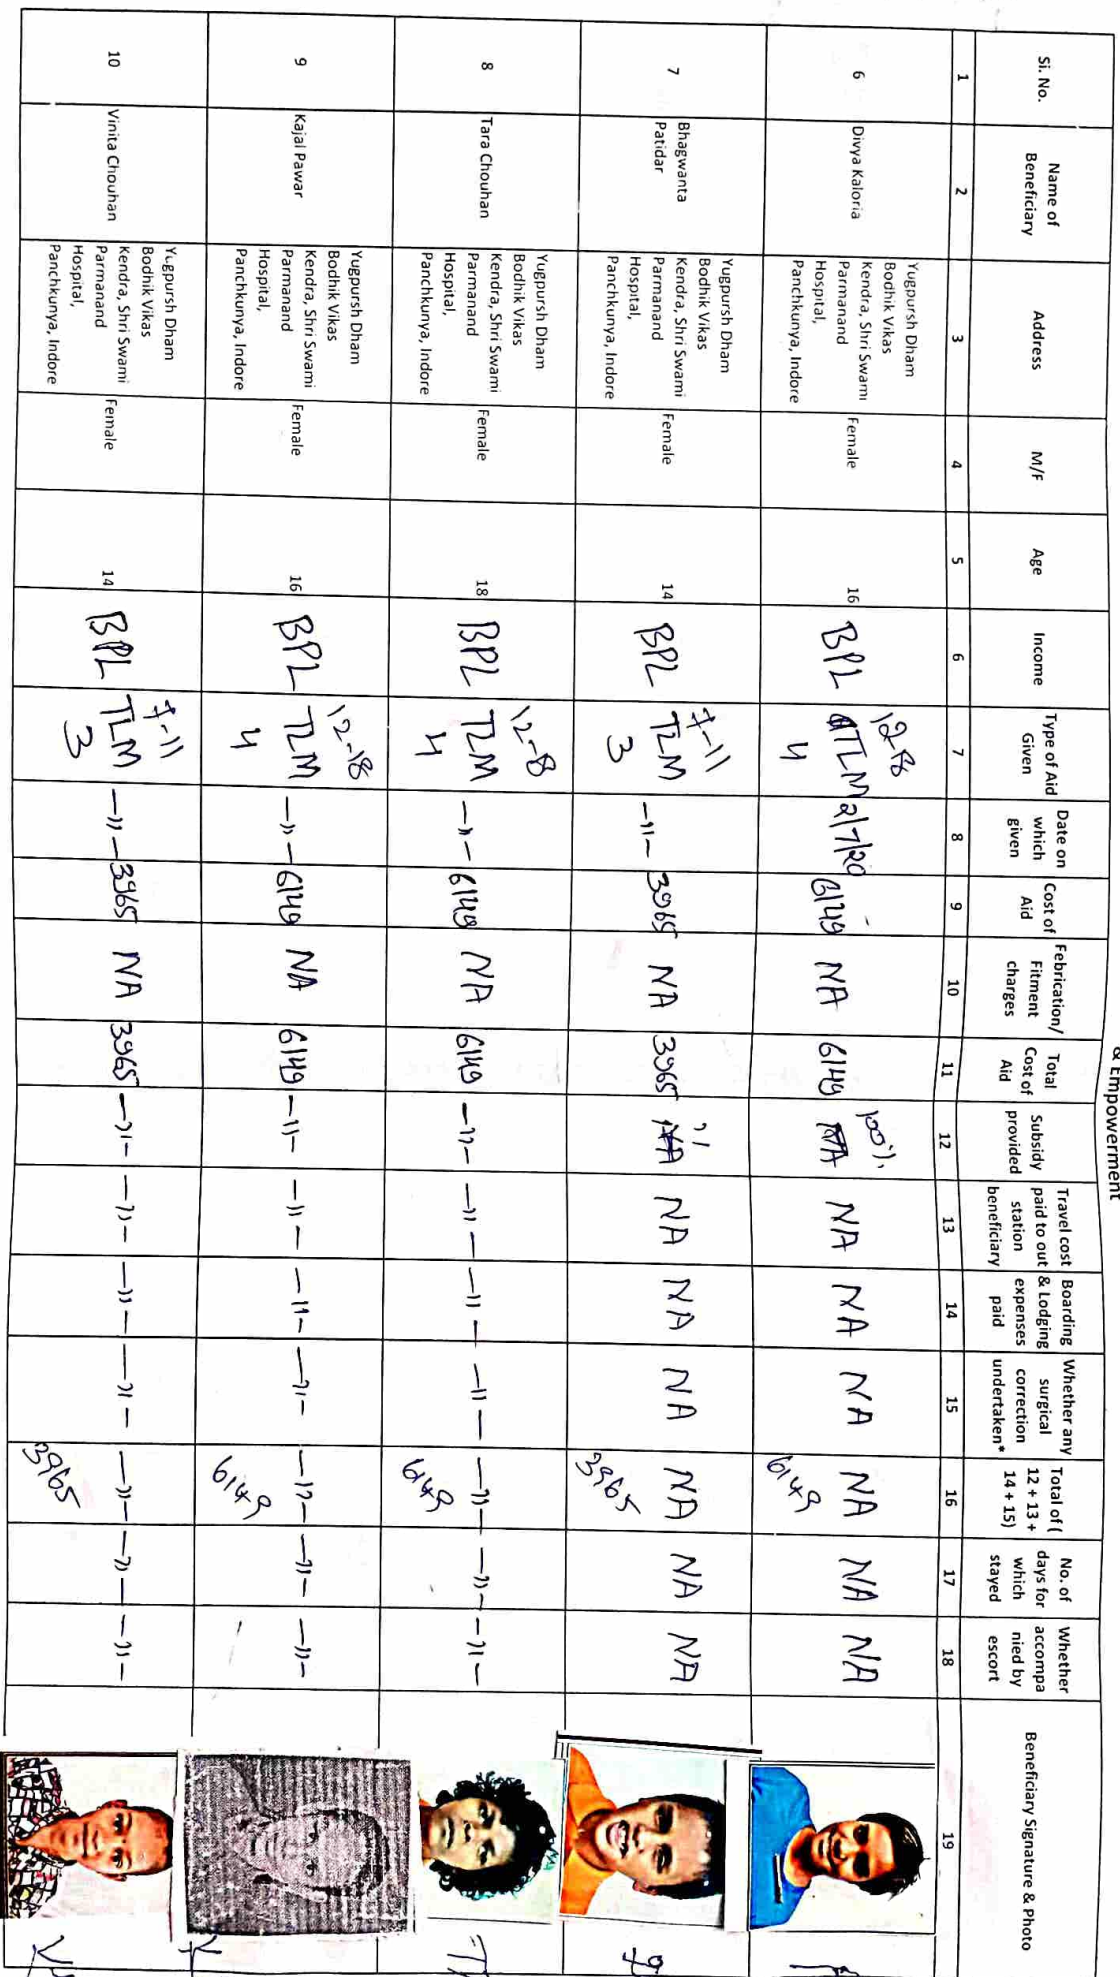 & Empowerment
Si. No.
Name of
Beneficiary
Address
M/F
Age
Income
Type of Aid
Given
Date on
which
given
Cost of
Aid
Febrication/
Fitment
charges
Total
Cost of
Aid
Subsidy
provided
Travel cost
paid to out
station
beneficiary
Boarding
& Lodging
expenses
paid
Whether any
surgical
correction
undertaken*
Total of (
12 + 13 +
14 + 15)
No. of
days for
which
stayed
Whether
accompa
nied by
escort
Beneficiary Signature & Photo
1 2 3 4 5 6 7 8 9 10 11 12 13 14 15 16 17 18 19
6
Divya Kaloria
Yugpursh Dham
Bodhik Vikas
Kendra, Shri Swami
Parmanand
Hospital,
Panchkunya, Indore
Female
16
BPL
12-18
TLM
4
2/7/20
6149
NA
6149
100%
NA
NA
NA
NA
6149
NA
NA
7
Bhagwanta
Patidar
Yugpursh Dham
Bodhik Vikas
Kendra, Shri Swami
Parmanand
Hospital,
Panchkunya, Indore
Female
14
BPL
7-11
TLM
3
-"-
3965
NA
3965
"
NA
NA
NA
NA
3965
NA
NA
8
Tara Chouhan
Yugpursh Dham
Bodhik Vikas
Kendra, Shri Swami
Parmanand
Hospital,
Panchkunya, Indore
Female
18
BPL
12-18
TLM
4
-"-
6149
NA
6149
-"-
-"-
-"-
-"-
-"-
6149
-"-
-"-
9
Kajal Pawar
Yugpursh Dham
Bodhik Vikas
Kendra, Shri Swami
Parmanand
Hospital,
Panchkunya, Indore
Female
16
BPL
12-18
TLM
4
-"-
6149
NA
6149
-"-
-"-
-"-
-"-
-"-
6149
-"-
-"-
10
Vinita Chouhan
Yugpursh Dham
Bodhik Vikas
Kendra, Shri Swami
Parmanand
Hospital,
Panchkunya, Indore
Female
14
BPL
7-11
TLM
3
-"-
3965
NA
3965
-"-
-"-
-"-
-"-
-"-
3965
-"-
-"-